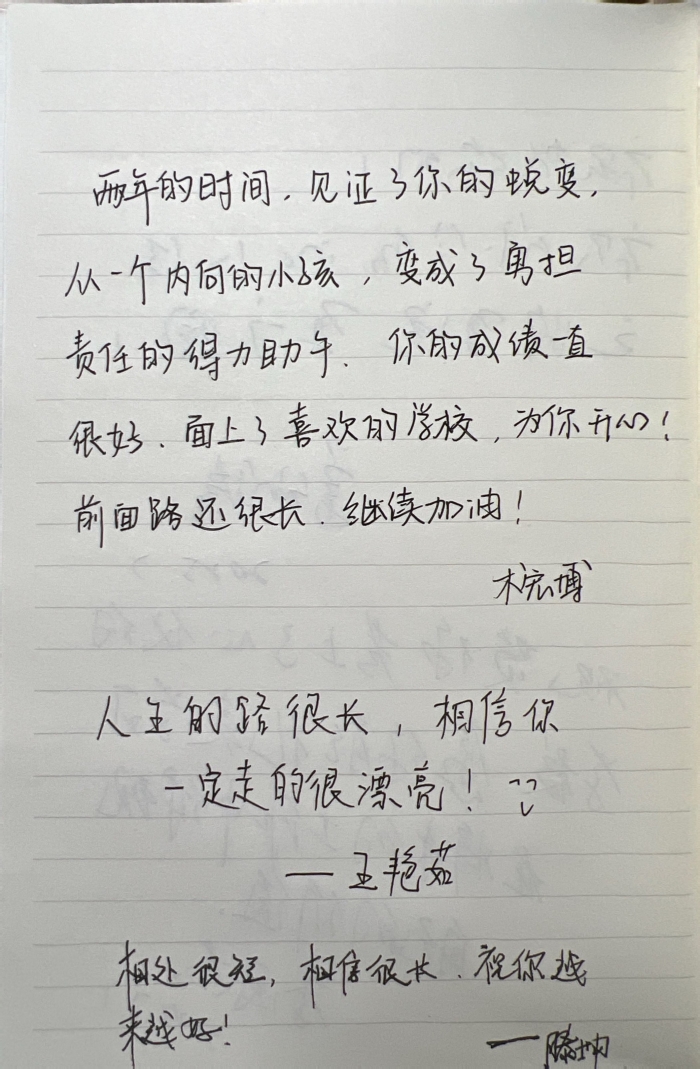 两年的时间，见证了你的蜕变，
从一个内向的小孩，变成了勇担
责任的得力助手. 你的成绩一直
很好、面上了喜欢的学校，为你开心！
前面路还很长.继续加油！
宏博
人生的路很长，相信你
一定走的很漂亮！
——王艳茹
相处很短，相信很长.祝你越
来越好！
——滕坤